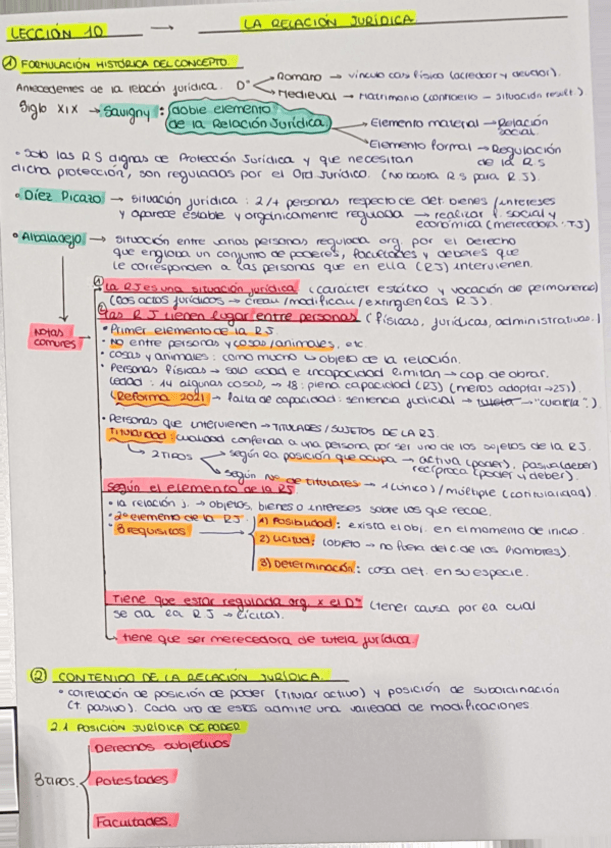 LECCIÓN 10 → LA RELACIÓN JURÍDICA
① FORMULACIÓN HISTÓRICA DEL CONCEPTO.
Antecedentes de la relación jurídica. Dº Romano → vínculo casi físico (acreedor y deudor).
Medieval → Matrimonio (contraerlo - situación result.)
Siglo XIX → Savigny: doble elemento de la Relación Jurídica
Elemento material → Relación social.
Elemento formal → Regulación de la R.S
• Solo las R S dignas de Protección Jurídica y que necesitan
dicha protección, son reguladas por el Ord. Jurídico. (No basta R.S para R.J).
• Díez Picazo → situación jurídica: 2/+ personas respecto de det. bienes/intereses
y aparece estable y orgánicamente regulada → realizar f. social y
económica (merecedora: TJ)
• Albaladejo → situación entre varias personas regulada org. por el Derecho
que engloba un conjunto de poderes, facultades y deberes que
le corresponden a las personas que en ella (RJ) intervienen.
Notas comunes
① La RJ es una situación jurídica (carácter estático y vocación de permanencia)
(Los actos jurídicos → crean/modifican/extinguen las R J).
② Las R J tienen lugar entre personas (físicas, jurídicas, administrativas.)
• Primer elemento de la R J.
• NO entre personas y cosas/animales, etc.
• cosas y animales: como mucho → objeto de la relación.
• Personas físicas → solo edad e incapacidad limitan → cap. de obrar.
(edad: 14 algunas cosas), → 18: plena capacidad (RJ) (menos adoptar → 25)).
(Reforma 2021 → falta de capacidad: sentencia judicial → tutela → "curatela").
• Personas que intervienen → TITULARES/SUJETOS DE LA RJ.
Titularidad: cualidad conferida a una persona por ser uno de los sujetos de la RJ.
→ 2 TIPOS → según la posición que ocupa → activa (poder), pasiva (deber)
recíproca (poder y deber).
→ según Nº de titulares → 1 (único)/múltiple (cotitularidad).
Según el elemento de la RJ
• la relación j. → objetos, bienes o intereses sobre los que recae.
• 2º elemento de la RJ
• 3 requisitos → 1) Posibilidad: exista el obj. en el momento de inicio.
2) Licitud: (objeto → no fuera del c. de los hombres).
3) Determinación: cosa det. en su especie.
Tiene que estar regulada org. x el Dº (tener causa por la cual
se da la R J → lícita).
tiene que ser merecedora de tutela jurídica.
② CONTENIDO DE LA RELACIÓN JURÍDICA.
• correlación de posición de poder (Titular activo) y posición de subordinación
(t. pasivo). Cada uno de estos admite una variedad de modificaciones
2.1 POSICIÓN JURÍDICA DE PODER
3 TIPOS.
Derechos subjetivos
Potestades
Facultades.